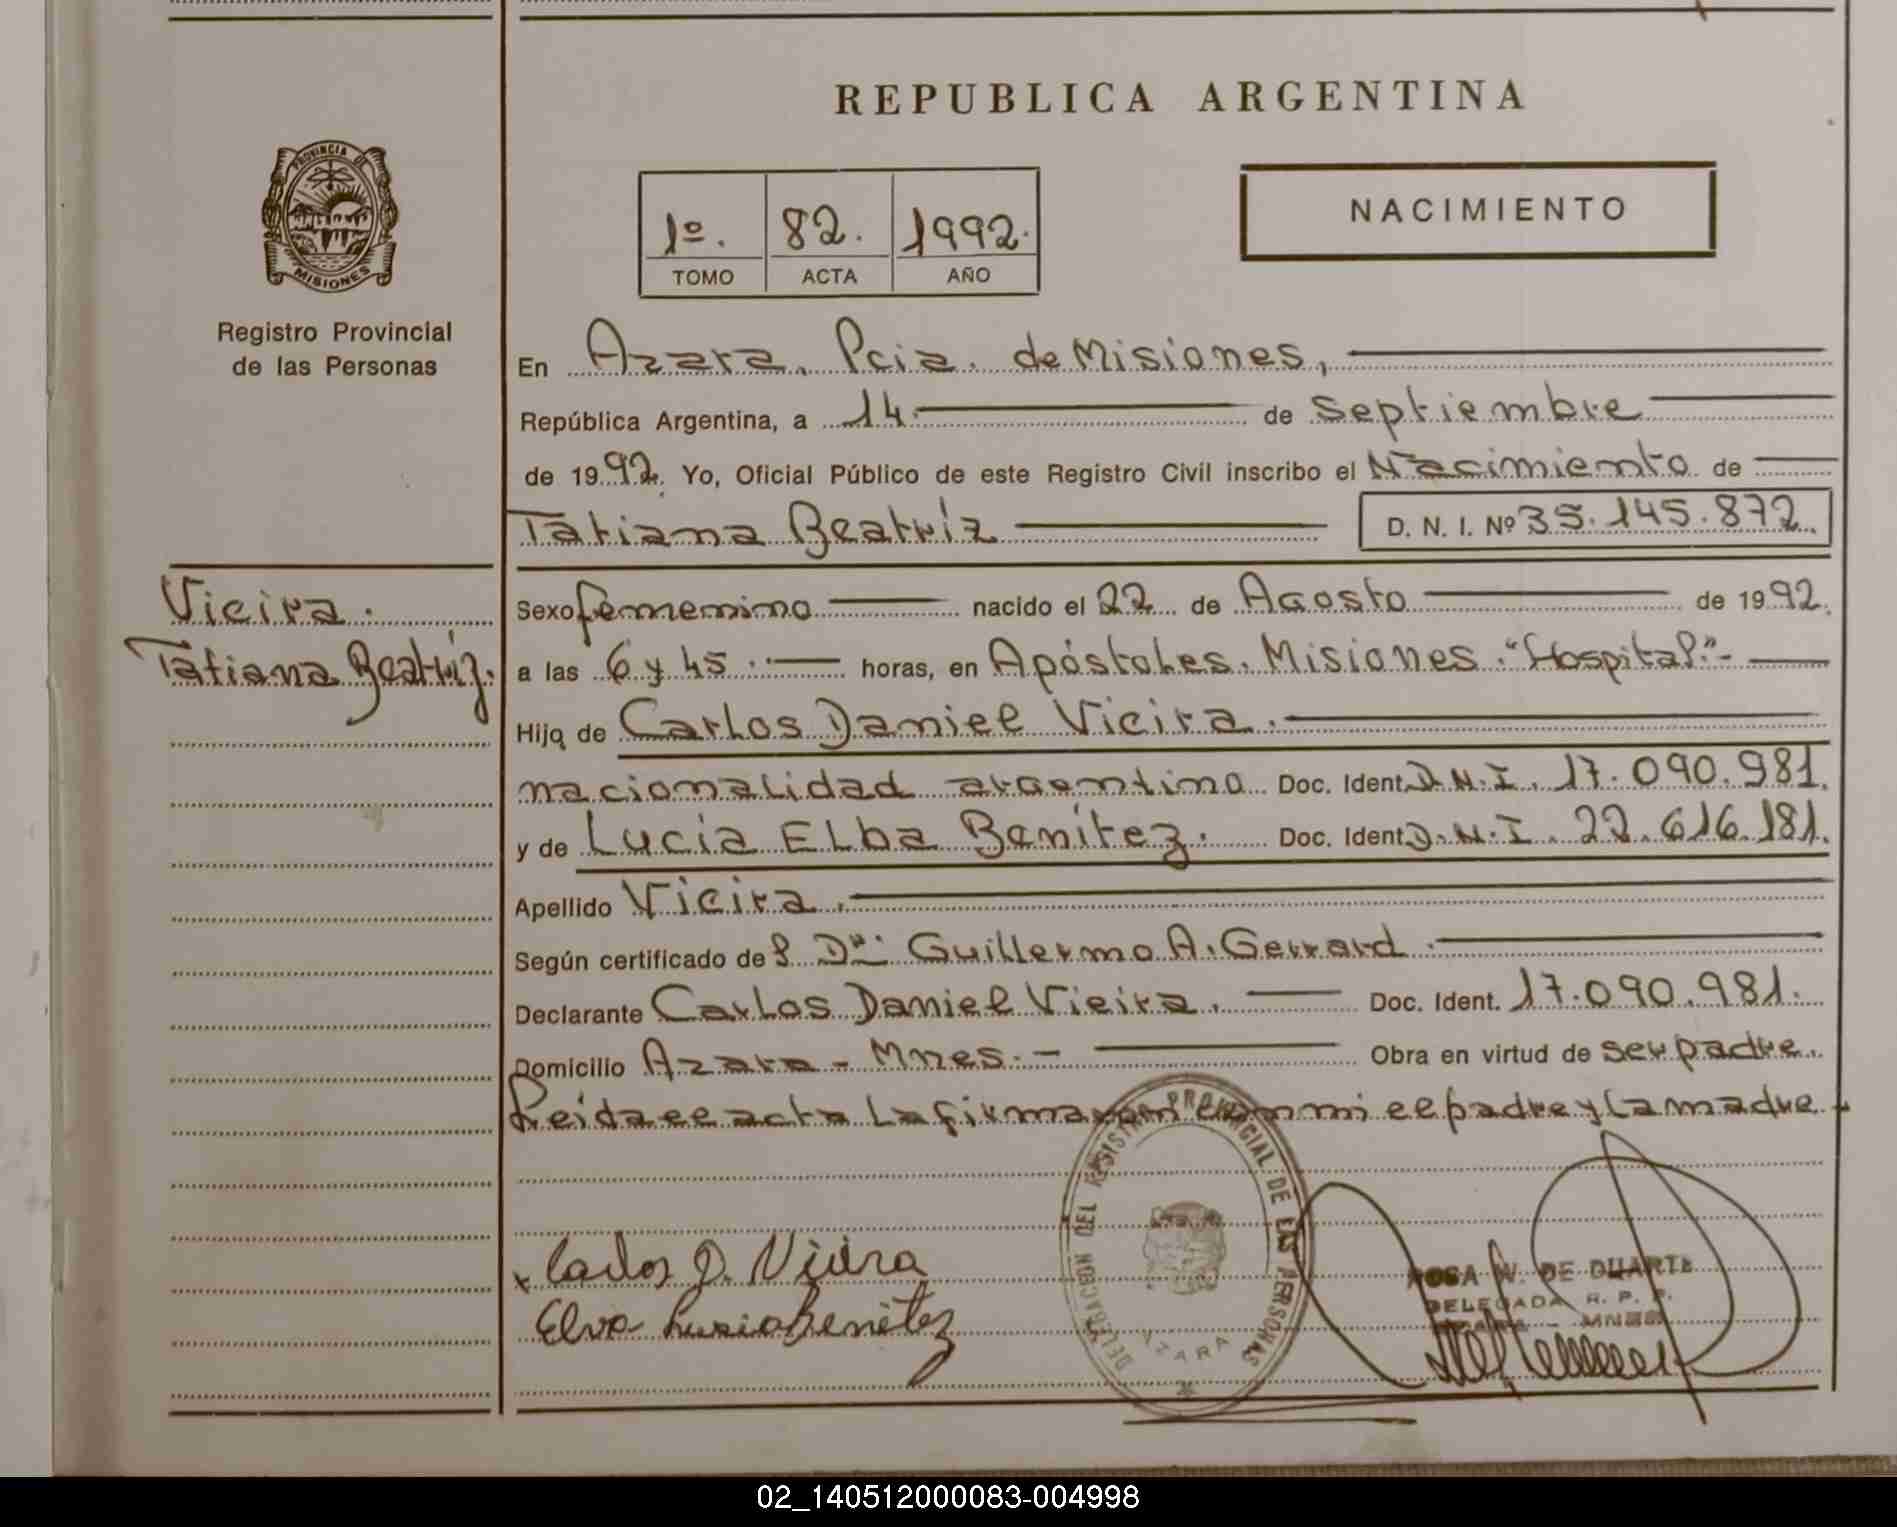 REPUBLICA ARGENTINA
PROVINCIA DE MISIONES
Registro Provincial
de las Personas
1º. 82. 1992.
TOMO ACTA AÑO
NACIMIENTO
En Azara, Pcia. de Misiones,
República Argentina, a 14 de Septiembre
de 1992. Yo, Oficial Público de este Registro Civil inscribo el Nacimiento de
Tatiana Beatriz D. N. I. Nº 35.145.872
Vieira.
Tatiana Beatriz.
Sexo femenino nacido el 22 de Agosto de 1992.
a las 6 y 45 horas, en Apóstoles. Misiones. "Hospital".-
Hijo de Carlos Daniel Vieira.
nacionalidad argentino Doc. Ident. D.N.I. 17.090.981.
y de Lucia Elba Benítez. Doc. Ident. D.N.I. 22.616.181.
Apellido Vieira.
Según certificado del Dr. Guillermo A. Gerrard.
Declarante Carlos Daniel Vieira. Doc. Ident. 17.090.981.
Domicilio Azara - Mnes. - Obra en virtud de ser padre.
Leida el acta la firmaron con mi el padre y la madre.-
DELEGACION DEL REGISTRO PROVINCIAL DE LAS PERSONAS
AZARA
Carlos D. Vieira
Elva Lucia Benítez
ROSA N. DE DUARTE
DELEGADA R. P. P.
AZARA - MNES
02_140512000083-004998